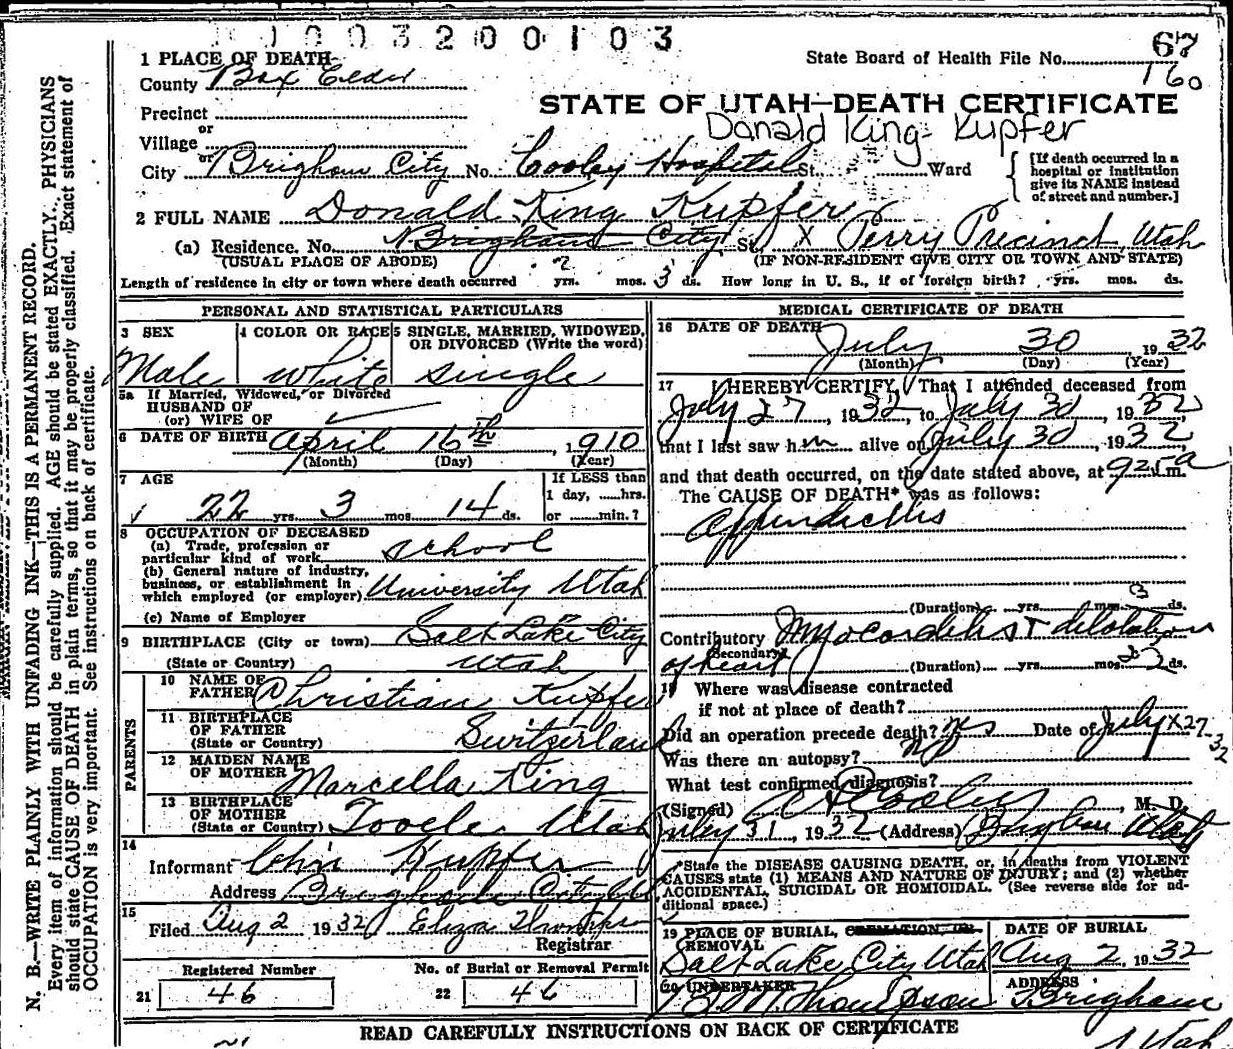 1003200103
1 PLACE OF DEATH
State Board of Health File No. 67
County Box Elder
160
STATE OF UTAH—DEATH CERTIFICATE
Precinct
Donald King Kupfer
or
Village
or
City Brigham City No. Cooley Hospital St. Ward
[If death occurred in a hospital or institution give its NAME instead of street and number.]
2 FULL NAME Donald King Kupfer
(a) Residence. No. Brigham City St. X Perry Precinct, Utah
(USUAL PLACE OF ABODE) (IF NON-RESIDENT GIVE CITY OR TOWN AND STATE)
Length of residence in city or town where death occurred 2 yrs. mos. 3 ds. How long in U. S., if of foreign birth? yrs. mos. ds.
PERSONAL AND STATISTICAL PARTICULARS
3 SEX 4 COLOR OR RACE 5 SINGLE, MARRIED, WIDOWED,
OR DIVORCED (Write the word)
Male White single
5a If Married, Widowed, or Divorced
HUSBAND OF
(or) WIFE OF
6 DATE OF BIRTH April 16th, 1910
(Month) (Day) (Year)
7 AGE If LESS than
1 day, hrs.
22 yrs. 3 mos. 14 ds. or min.?
8 OCCUPATION OF DECEASED
(a) Trade, profession or
particular kind of work school
(b) General nature of industry,
business, or establishment in
which employed (or employer) University Utah
(c) Name of Employer
9 BIRTHPLACE (City or town) Salt Lake City
(State or Country) Utah
PARENTS
10 NAME OF
FATHER Christian Kupfer
11 BIRTHPLACE
OF FATHER
(State or Country) Switzerland
12 MAIDEN NAME
OF MOTHER Marcella King
13 BIRTHPLACE
OF MOTHER
(State or Country) Tooele Utah
14
Informant Chris Kupfer
Address Brigham City
15
Filed Aug 2 1932 Eliza
Registrar
Registered Number No. of Burial or Removal Permit
21 46 22 46
MEDICAL CERTIFICATE OF DEATH
16 DATE OF DEATH
July 30 1932
(Month) (Day) (Year)
17 I HEREBY CERTIFY, That I attended deceased from
July 27, 1932, to July 30, 1932
that I last saw him alive on July 30, 1932
and that death occurred, on the date stated above, at 925 a m.
The CAUSE OF DEATH* was as follows:
Appendicitis
(Duration) yrs. mos. 3 ds.
Contributory Myocarditis & dilatation
(Secondary)
of heart (Duration) yrs. mos. 2 ds.
18 Where was disease contracted
if not at place of death?
Did an operation precede death? Yes Date of July 27-32
Was there an autopsy? no
What test confirmed diagnosis?
(Signed) Cooley, M. D.
July 31, 1932 (Address) Brigham Utah
*State the DISEASE CAUSING DEATH, or, in deaths from VIOLENT
CAUSES state (1) MEANS AND NATURE OF INJURY; and (2) whether
ACCIDENTAL, SUICIDAL OR HOMICIDAL. (See reverse side for additional space.)
19 PLACE OF BURIAL, CREMATION, OR
REMOVAL
DATE OF BURIAL
Salt Lake City Utah Aug 2, 1932
20 UNDERTAKER ADDRESS
B M Thompson Brigham
Utah
READ CAREFULLY INSTRUCTIONS ON BACK OF CERTIFICATE
N. B.—WRITE PLAINLY WITH UNFADING INK—THIS IS A PERMANENT RECORD.
Every item of information should be carefully supplied. AGE should be stated EXACTLY. PHYSICIANS
should state CAUSE OF DEATH in plain terms, so that it may be properly classified. Exact statement of
OCCUPATION is very important. See instructions on back of certificate.